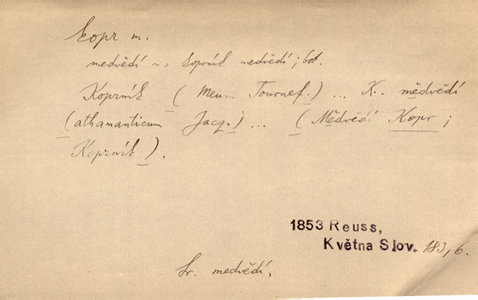 kopr m.
medvědí ~ = koprník medvědí; bot.
Koprník (Meum Tournef.) ... K.. mědvědí
(athamanticum Jacq.) ... (Mědvědí Kopr;
Koprník).
1853 Reuss,
Května Slov. 183, 6.
Sr. medvědí.